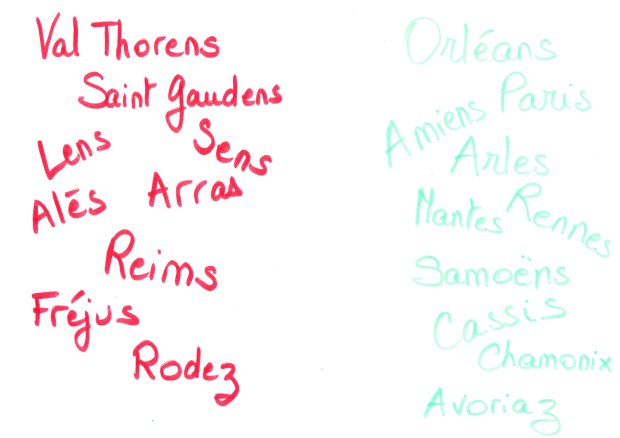 Val Thorens
Saint Gaudens
Lens
Sens
Alés
Arras
Reims
Fréjus
Rodez
Orléans
Paris
Amiens
Arles
Nantes
Rennes
Samoëns
Cassis
Chamonix
Avoriaz